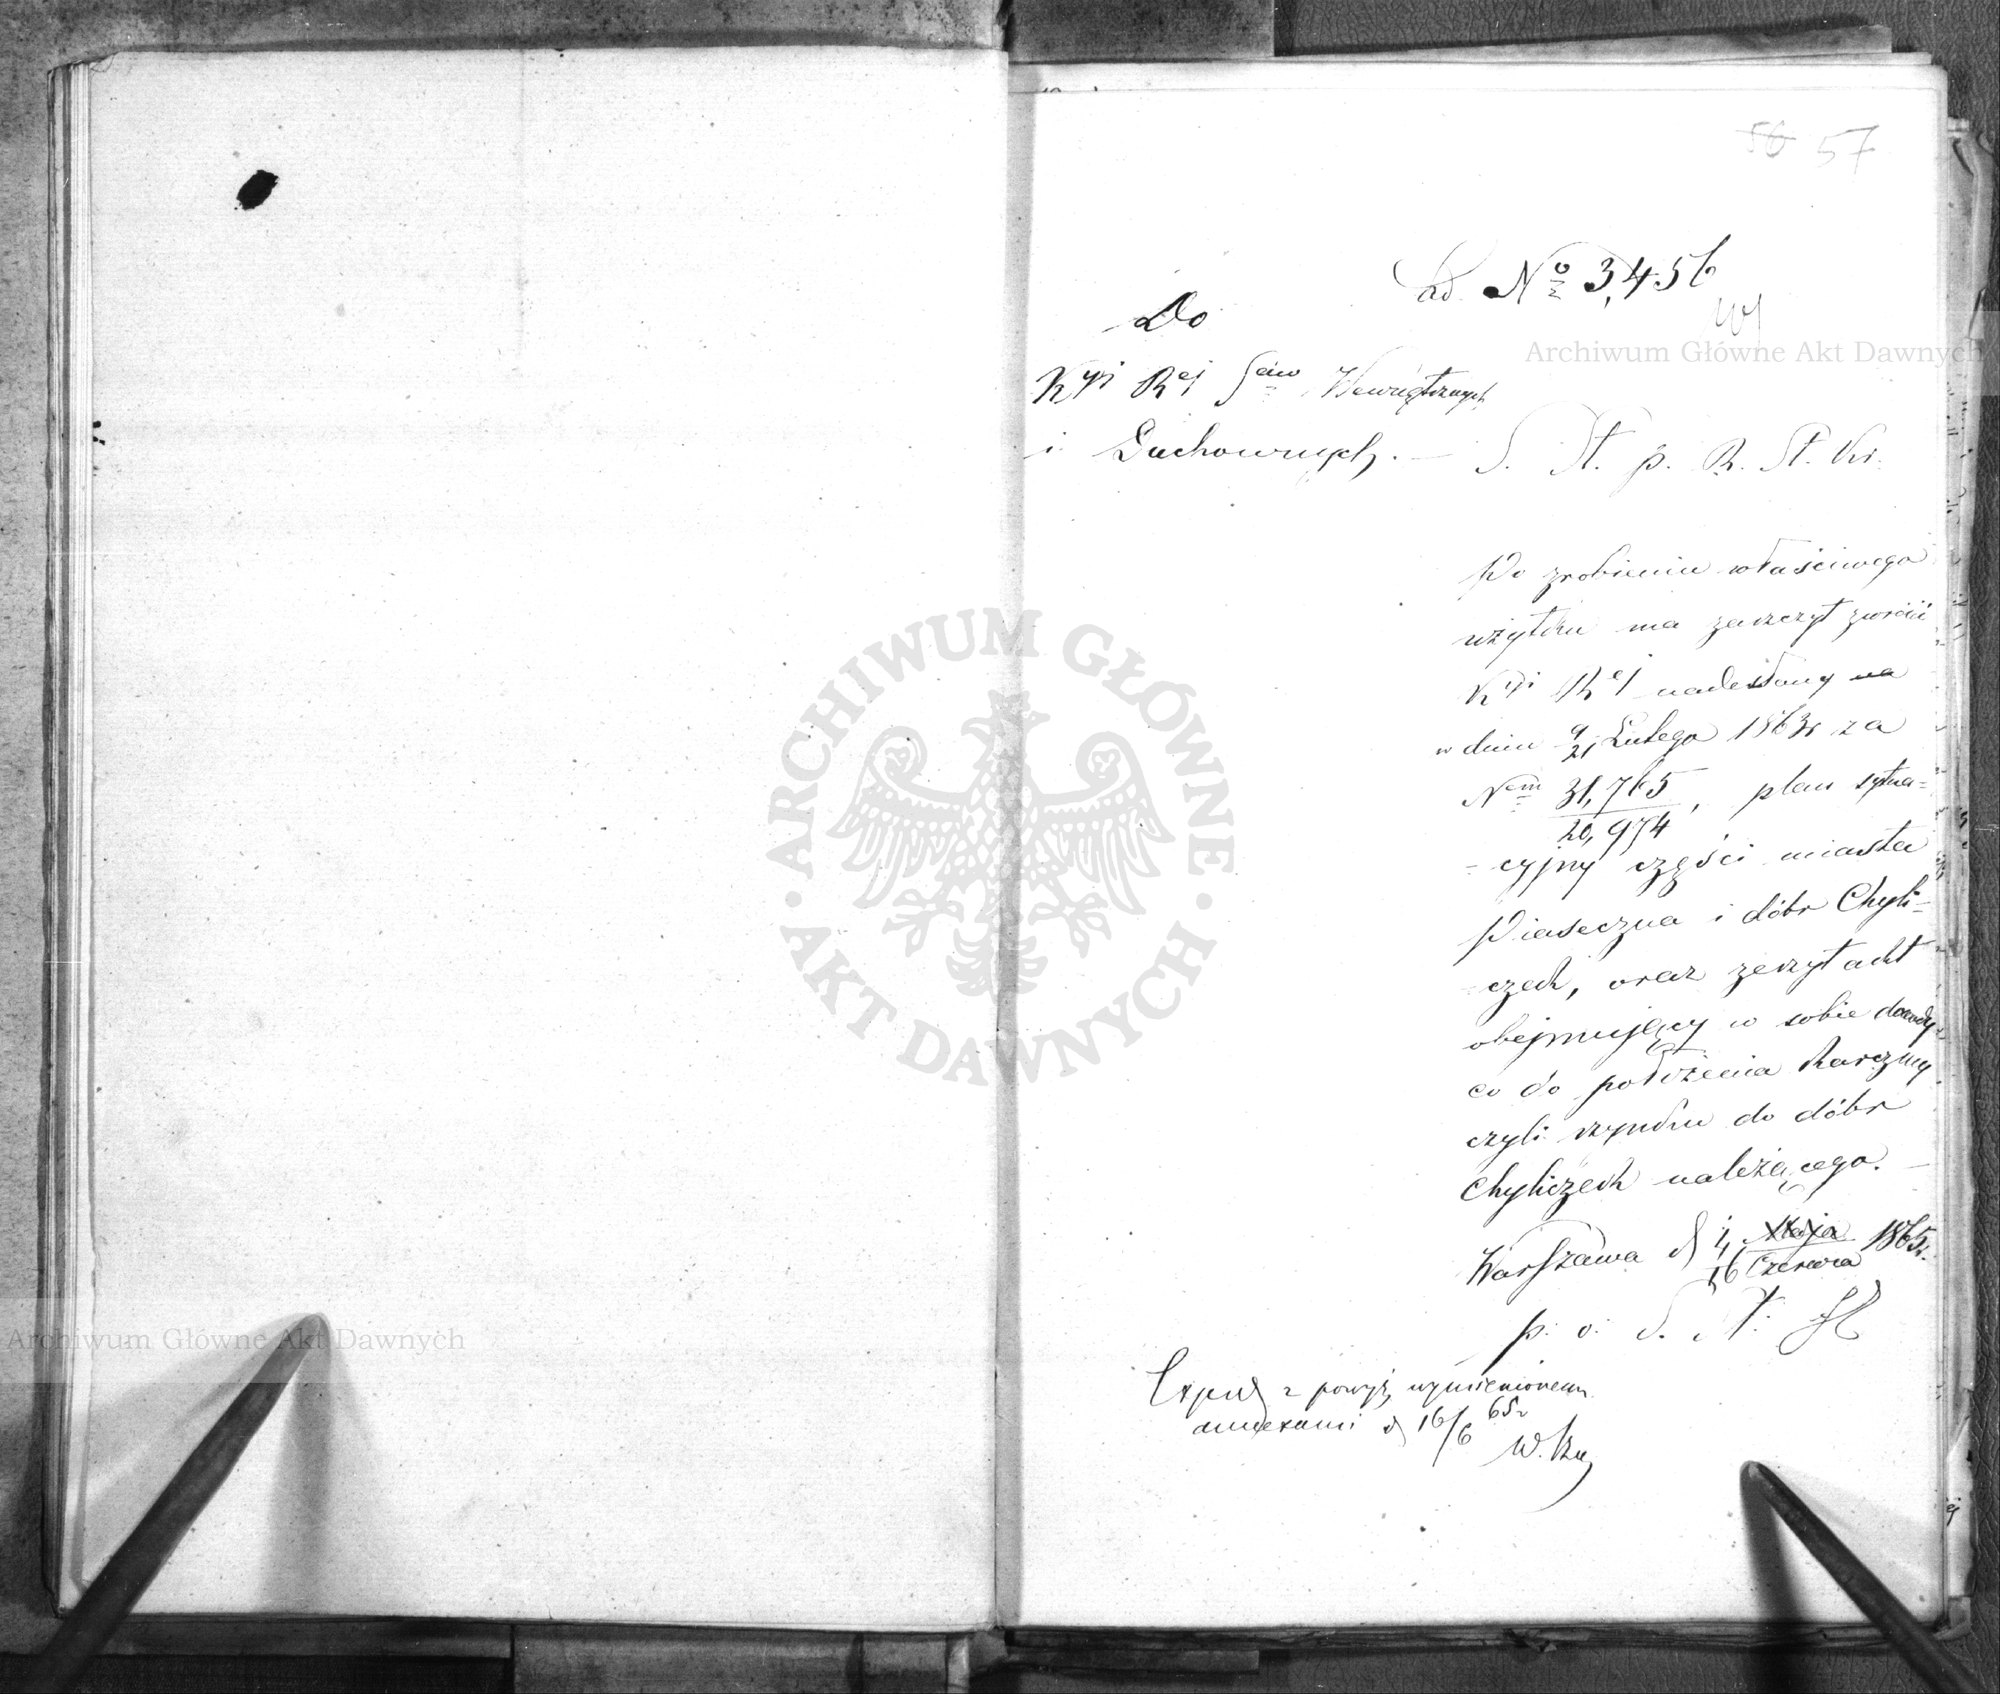 56 57
ad. No 3,456
Do
Kyi Rej S. Wewnętrznych
i Duchownych. —
S. St. p. R. St. Kr.
Po zrobieniu właściwego
użytku ma zaszczyt zwrócić
Kyi Rej nadesłany na
w dniu 9/21 Lutego 1863r za
Nem 31,765/20,974, plan sytua=
=cyjny części miasta
Piaseczna i dóbr Chyli=
=czek, oraz zeszyt akt
obejmujący w sobie dowody
co do położenia Karczmy
czyli szynku do dóbr
Chyliczek należącego. —
Warszawa d 4/16 Maja Czerwca 1865r.
p. o. S. St.
z powyż wymienionemi
anneksami d 16/6 65r
Archiwum Główne Akt Dawnych
ARCHIWUM GŁÓWNE
AKT DAWNYCH
Archiwum Główne Akt Dawnych